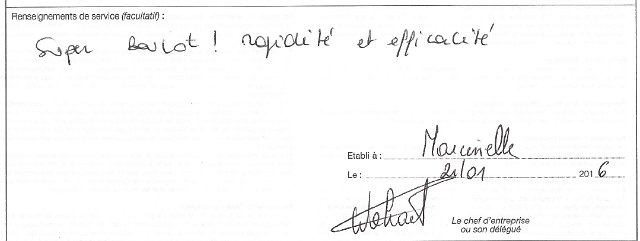 Renseignements de service (facultatif) :
Super Boulot ! rapidité et efficacité
Etabli à : Marcinelle
Le : 21/01 2016
Le chef d'entreprise
ou son délégué